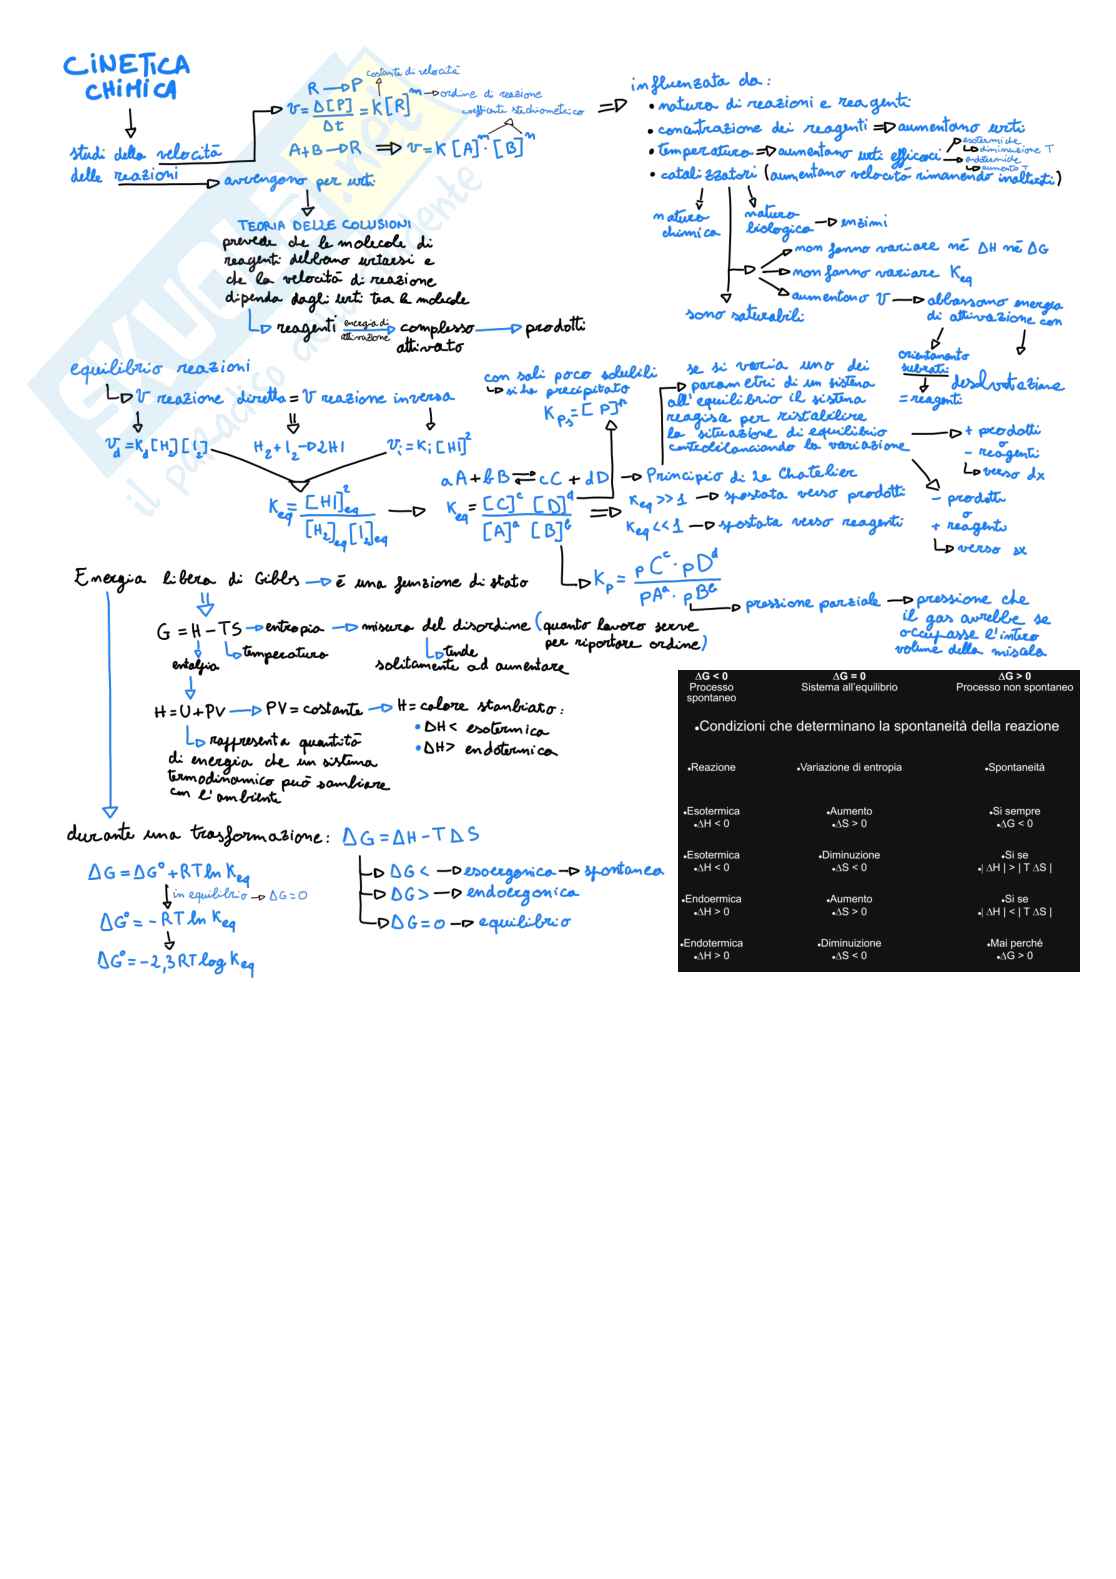 CINETICA
CHIMICA
studi della velocità
delle reazioni → avvengono per urti
R → P
costante di velocità
v = Δ[P]/Δt = K[R]^m → ordine di reazione
coefficienti stechiometrico
A+B → R ⇒ v = K [A]^m · [B]^n
TEORIA DELLE COLLISIONI
prevede che le molecole di
reagenti debbano urtarsi e
che la velocità di reazione
dipenda dagli urti tra le molecole
reagenti → energia di attivazione → complesso attivato → prodotti
influenzata da:
• natura di reazioni e reagenti
• concentrazione dei reagenti ⇒ aumentano urti
• temperatura ⇒ aumentano urti efficaci
esotermiche
→ diminuzione T
endotermiche
→ aumento T
• catalizzatori (aumentano velocità rimanendo inalterati)
natura
chimica
natura
biologica → enzimi
non fanno variare né ΔH né ΔG
non fanno variare Keq
aumentano v → abbassano energia
di attivazione con
sono saturabili
orientamento
substrati
= reagenti
desolvatazione
equilibrio reazioni
v reazione diretta = v reazione inversa
v_d = K_d [H2] [I2]
H2 + I2 → 2HI
v_i = K_i [HI]^2
Keq = [HI]^2eq / [H2]eq [I2]eq
con sali poco solubili
→ si ha precipitato
Kps = [P]^n
aA + bB ⇌ cC + dD → Principio di Le Chatelier
Keq = [C]^c [D]^d / [A]^a [B]^b
Keq >> 1 → spostata verso prodotti
Keq << 1 → spostata verso reagenti
se si varia uno dei
parametri di un sistema
all'equilibrio il sistema
reagisce per ristabilire
la situazione di equilibrio
controbilanciando la variazione
+ prodotti
o
- reagenti
→ verso dx
- prodotti
o
+ reagenti
→ verso sx
Kp = pC^c · pD^d / pA^a · pB^b
→ pressione parziale → pressione che
il gas avrebbe se
occupasse l'intero
volume della miscela
Energia libera di Gibbs → è una funzione di stato
G = H - TS → entropia → misura del disordine (quanto lavoro serve
per riportare ordine)
entalpia
temperatura
tende
solitamente ad aumentare
H = U + PV → PV = costante → H = calore scambiato:
• ΔH < esotermica
• ΔH > endotermica
rappresenta quantità
di energia che un sistema
termodinamico può scambiare
con l'ambiente
durante una trasformazione: ΔG = ΔH - TΔS
ΔG = ΔG° + RT ln Keq
in equilibrio → ΔG = 0
ΔG° = - RT ln Keq
ΔG° = -2,3 RT log Keq
ΔG < → esoergonica → spontanea
ΔG > → endoergonica
ΔG = 0 → equilibrio
ΔG < 0 ΔG = 0 ΔG > 0
Processo spontaneo Sistema all'equilibrio Processo non spontaneo
•Condizioni che determinano la spontaneità della reazione
•Reazione •Variazione di entropia •Spontaneità
•Esotermica •Aumento •Si sempre
•ΔH < 0 •ΔS > 0 •ΔG < 0
•Esotermica •Diminuzione •Si se
•ΔH < 0 •ΔS < 0 •| ΔH | > | T ΔS |
•Endoermica •Aumento •Si se
•ΔH > 0 •ΔS > 0 •| ΔH | < | T ΔS |
•Endotermica •Diminuizione •Mai perché
•ΔH > 0 •ΔS < 0 •ΔG > 0
SKUOLA.net
il paradiso dello studente